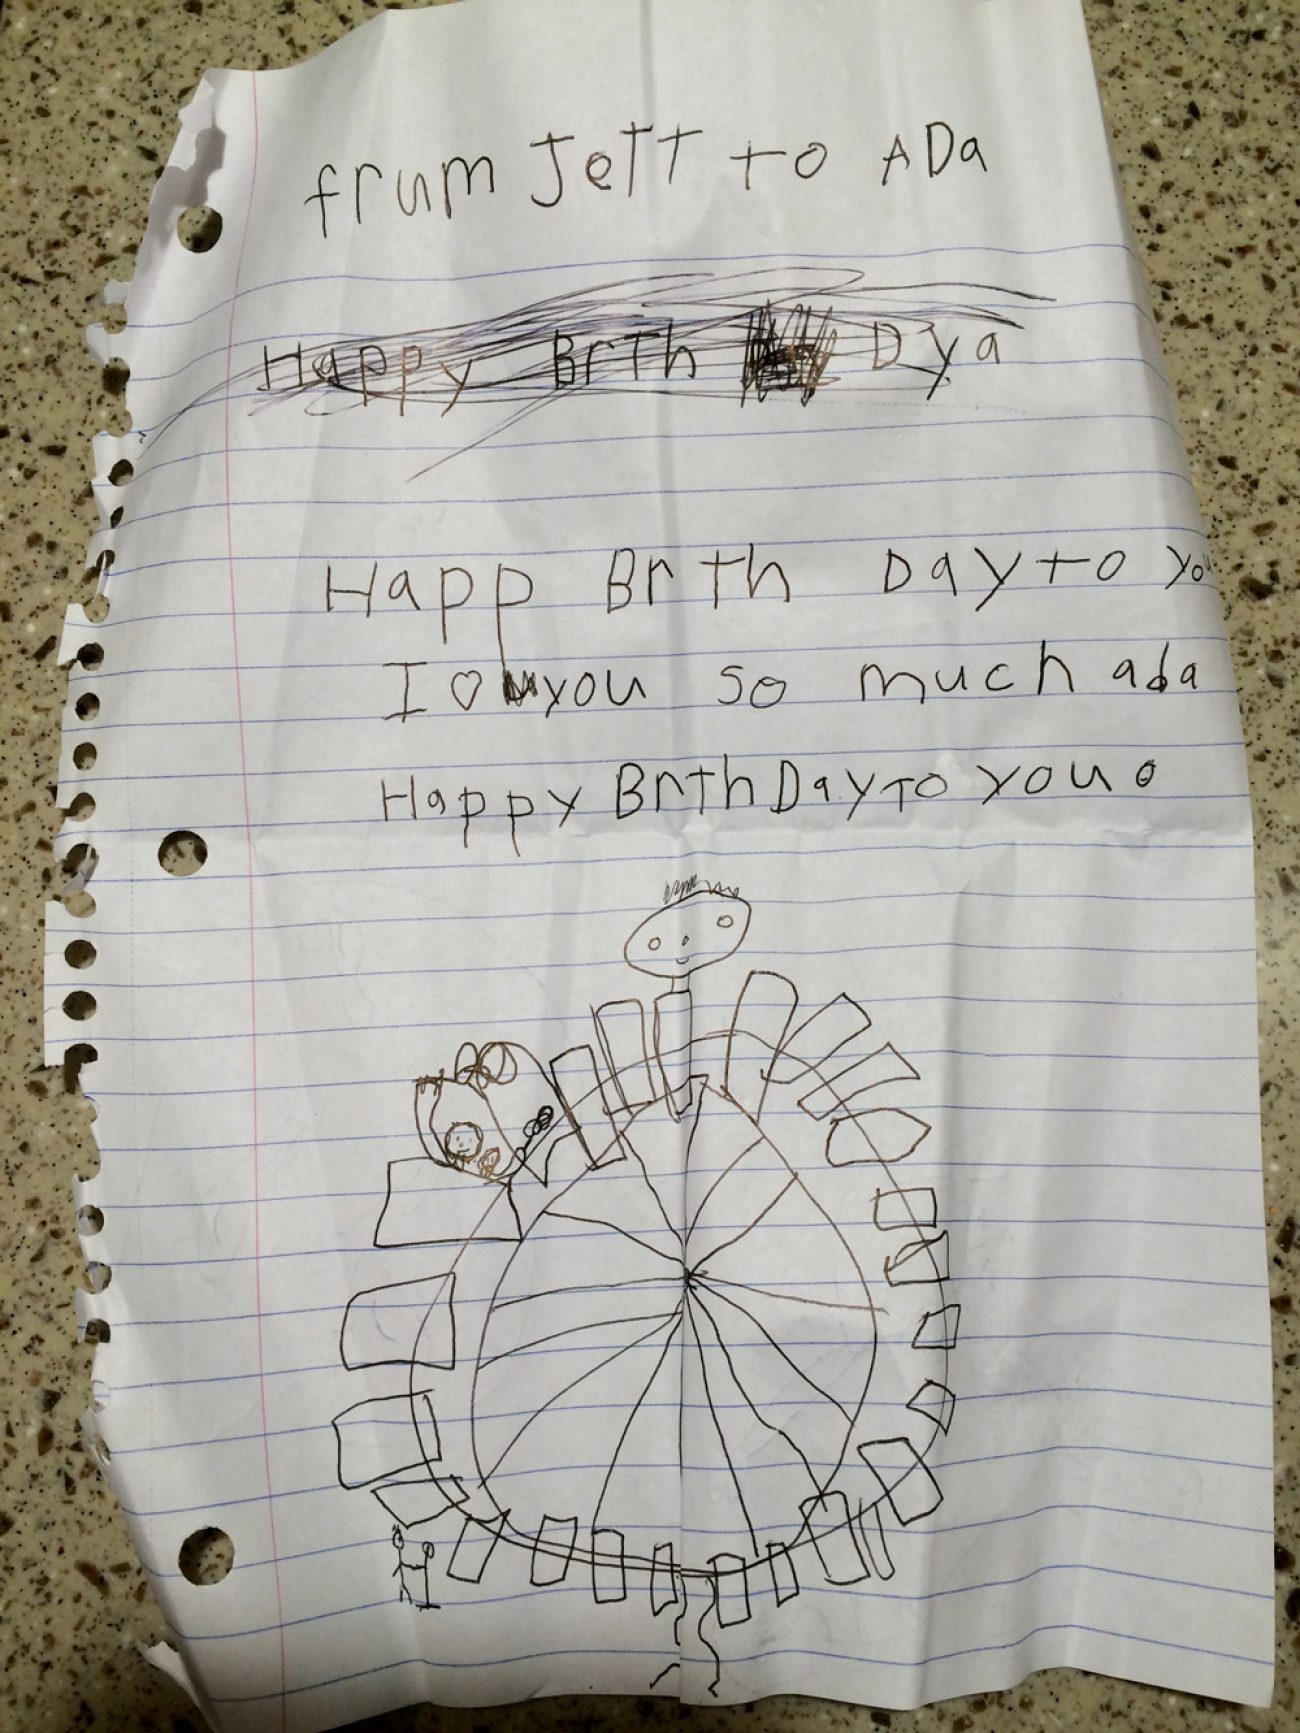 frum Jett to ADa
Happy Brth Dya
Happ Brth Day to you
I ♡ you so much ada
Happy BrthDay To you o